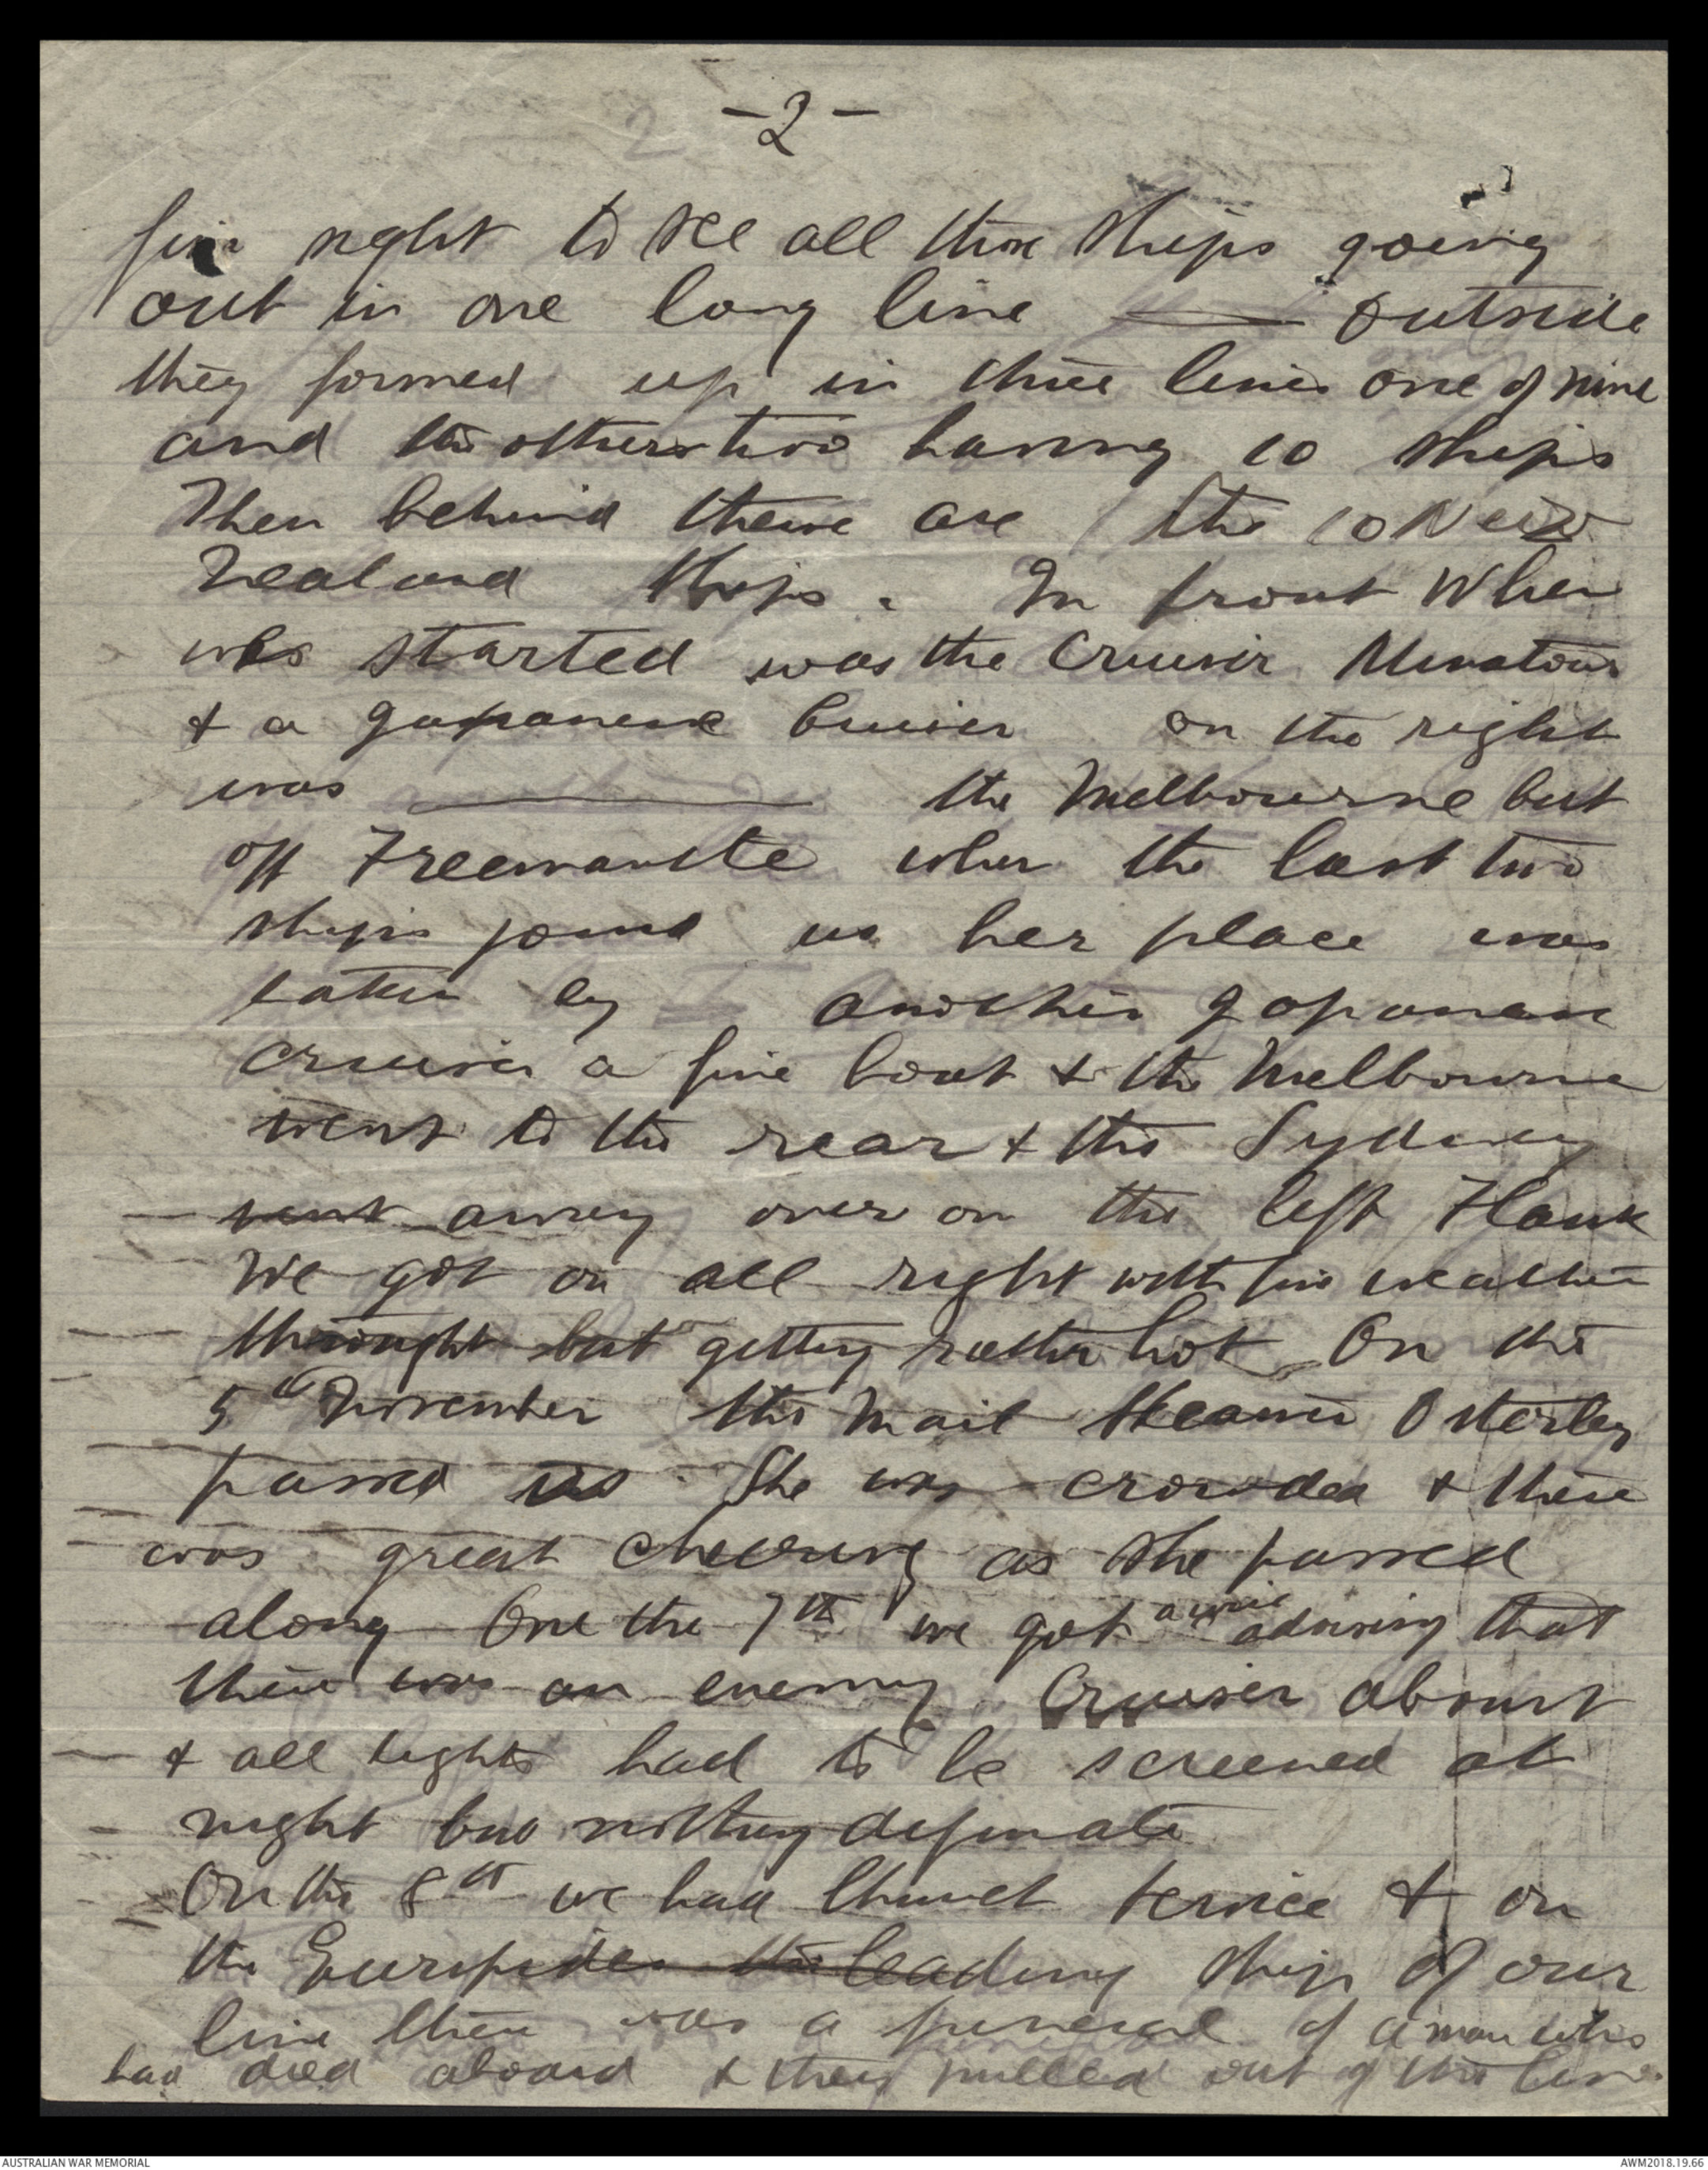 -2-
fine sight to see all these ships going
out in one long line — outside
they formed up in three lines one of nine
and the others two having 10 ships
Then behind these are the 10 New
Zealand ships. In front when
was started was the Cruiser Minatour
& a Japanese Cruiser on the right
was — the Melbourne but
off Freemantle when the last two
ships joined us her place was
taken by another Japanese
cruiser a fine boat & the Melbourne
went to the rear & the Sydney
went away over on the left Flank
We got on all right with fine weather
throught but getting rather hot On the
5th November the Mail Steamer Osterley
passed us. She was crowded & there
was great cheering as she passed
along One the 7th we got a wire advising that
there was an enemy Cruiser about
& all lights had to be screened at
night but nothing definate
On the 8th we had Church service & on
the Euripides the leading ship of our
line there was a funeral of a man who
had died aboard & they pulled out of the line.
AUSTRALIAN WAR MEMORIAL
AWM2018.19.66